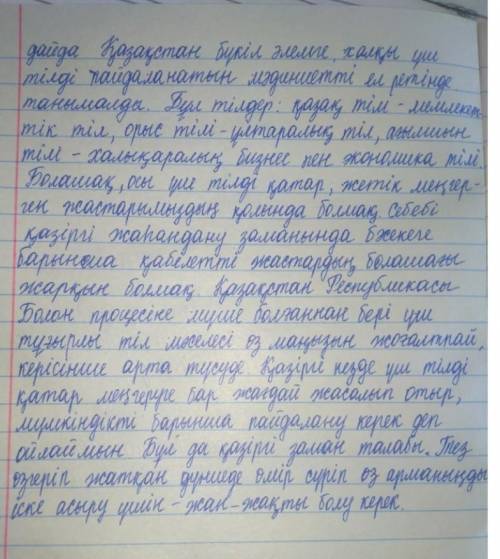 дайда Қазақстан бүкіл әлемге, халқы үш
тілді пайдаланатын мәдениетті ел ретінде
танымалда. Бұл тілдер: қазақ тілі - мемлекет-
тік тіл, орыс тілі - ұлтаралық тіл, ағылшын
тілі - халықаралық бизнес пен экономика тілі.
Болашақ, осы үш тілді қатар, жетік меңгер-
ген жастарымыздың қолында болмақ. Себебі
қазіргі жаһандану заманында бәсекеге
барынша қабілетті жастардың болашағы
жарқын болмақ. Қазақстан Республикасы
Болон процесіне мүше болғаннан бері үш
тұғырлы тіл мәселесі өз маңызын жоғалтпай,
керісінше арта түсуде. Қазіргі кезде үш тілді
қатар меңгеруге бар жағдай жасалып отыр,
мүмкіндікті барынша пайдалану керек деп
ойлаймын Бұл да қазіргі заман талабы. Тез
өзгеріп жатқан дүниеде өмір сүріп өз арманыңды
іске асыру үшін - жан-жақты болу керек.